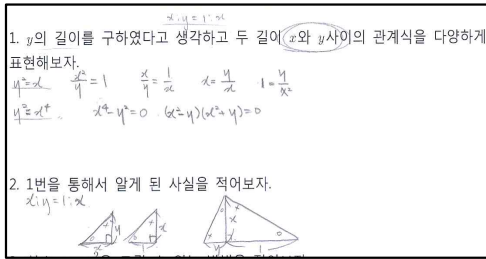 x:y=1:x
1. y의 길이를 구하였다고 생각하고 두 길이 x와 y사이의 관계식을 다양하게
표현해보자.
y=x² x²/y=1 x/y=1/x x=y/x 1=y/x²
y²=x⁴ x⁴-y²=0 (x²-y)(x²+y)=0
2. 1번을 통해서 알게 된 사실을 적어보자.
x:y=1:x